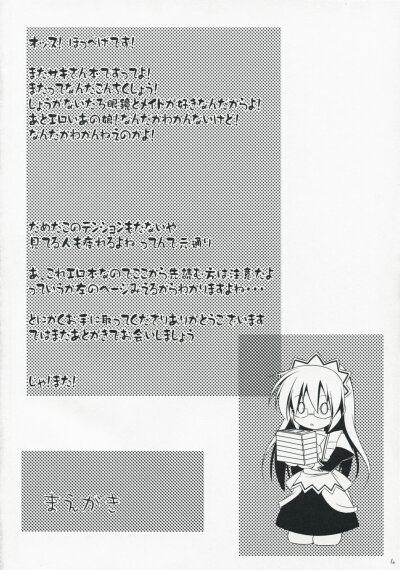 オッス！ほっぺけです！
またサキさん本ですってよ！
またってなんだこんちくしょう！
しょうがないだろ眼鏡とメイドが好きなんだからよ！
あとエロいあの娘！なんだかわかんないけど！
なんだかわかんねえのかよ！
だめだこのテンションもたないや
見てる人も疲れるよね ってんで元通り
あ、これエロ本なのでここから先読む方は注意だよ
っていうか左のページみえるからわかりますよね・・・
とにかくお手に取ってくださりありがとうございます
ではまたあとがきでお会いしましょう
じゃ！また！
まえがき
4